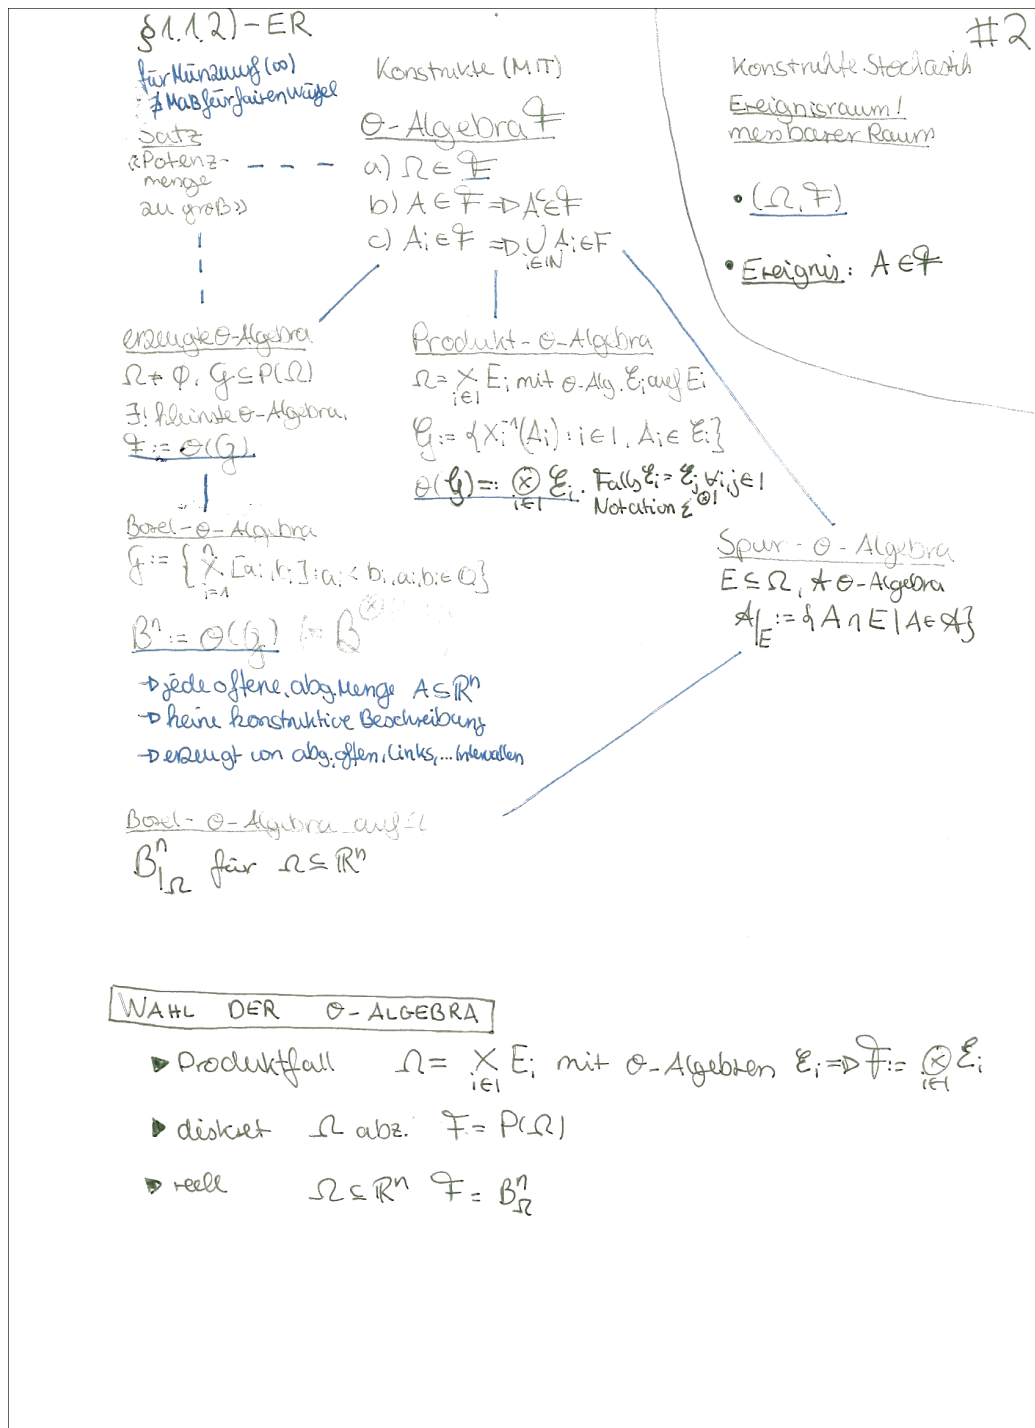 §1.1.2)-ER
#2
für Münzwurf (∞)
∄ Maß für fairen Würfel
Satz
«Potenz-
menge
zu groß»
Konstrukte (MIT)
σ-Algebra F
a) Ω ∈ F
b) A ∈ F ⇒ Aᶜ ∈ F
c) Ai ∈ F ⇒ ⋃ Ai ∈ F
i∈ℕ
Konstrukte Stochastik
Ereignisraum!
messbarer Raum
• (Ω, F)
• Ereignis: A ∈ F
erzeugte σ-Algebra
Ω ≠ ∅, G ⊆ P(Ω)
∃! kleinste σ-Algebra,
F := σ(G).
Produkt-σ-Algebra
Ω = X Ei mit σ-Alg. Ei auf Ei
i∈I
G := {Xi⁻¹(Ai) : i∈I, Ai ∈ Ei}
σ(G) =: ⊗ Ei. Falls Ei = Ej ∀i,j∈I
i∈I Notation E^⊗I
Borel-σ-Algebra
G := { X [ai, bi] : ai < bi, ai, bi ∈ Q}
n
i=1
Bⁿ := σ(G) (= B^⊗
→ jede offene, abg. Menge A ⊆ ℝⁿ
→ keine konstruktive Beschreibung
→ erzeugt von abg., offen, links, ... Intervallen
Spur-σ-Algebra
E ⊆ Ω, A σ-Algebra
A|E := {A ∩ E | A ∈ A}
Borel-σ-Algebra auf Ω
Bⁿ|Ω für Ω ⊆ ℝⁿ
WAHL DER σ-ALGEBRA
▶ Produktfall Ω = X Ei mit σ-Algebren Ei ⇒ F := ⊗ Ei
i∈I i∈I
▶ diskret Ω abz. F = P(Ω)
▶ reell Ω ⊆ ℝⁿ F = BⁿΩ